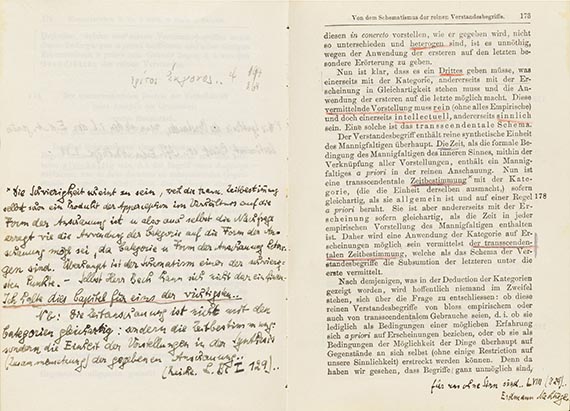 τρίτος ἄνθρωπος..
"Die Schwierigkeit scheint zu sein, weil die transc. Zeitbestimmung
selbst schon ein Produkt der Apperzeption im Verhältnis auf die
Form der Anschauung ist u also auch selbst die Nachfrage
erregt wie die Anwendung der Kategorie auf die Form der An-
schauung möglich sei, da Kategorie u Form der Anschauung heterogen
sind. Überhaupt ist der Schematism einer der schwierig-
sten Punkte. – Selbst Herr Beck kann sich nicht darein finden.
Ich halte dies Capitel für eins der wichtigsten..
Nb: Die Zeitanschauung ist nicht mit den
Kategorien gleichartig: sondern die Zeitbestimmung:
sondern die Einheit der Vorstellungen in der Synthesis
(Zusammensetzung) der gegebenen Anschauung..
(Reicke L. Bl I 129)..
Von dem Schematismus der reinen Verstandesbegriffe. 173
diesen in concreto vorstellen, wie er gegeben wird, nicht
so unterschieden und heterogen sind, ist es unnötig,
wegen der Anwendung der ersteren auf den letzten be-
sondere Erörterung zu geben.
Nun ist klar, dass es ein Drittes geben müsse, was
einerseits mit der Kategorie, andererseits mit der Er-
scheinung in Gleichartigkeit stehen muss und die An-
wendung der ersteren auf die letzte möglich macht. Diese
vermittelnde Vorstellung muss rein (ohne alles Empirische)
und doch einerseits intellectuell, andererseits sinnlich
sein. Eine solche ist das transscendentale Schema.
Der Verstandesbegriff enthält reine synthetische Einheit
des Mannigfaltigen überhaupt. Die Zeit, als die formale Be-
dingung des Mannigfaltigen des inneren Sinnes, mithin der
Verknüpfung aller Vorstellungen, enthält ein Mannig-
faltiges a priori in der reinen Anschauung. Nun ist
eine transscendentale Zeitbestimmung mit der Kate-
gorie, (die die Einheit derselben ausmacht,) sofern
gleichartig, als sie allgemein ist und auf einer Regel 178
a priori beruht. Sie ist aber andererseits mit der Er-
scheinung sofern gleichartig, als die Zeit in jeder
empirischen Vorstellung des Mannigfaltigen enthalten
ist. Daher wird eine Anwendung der Kategorie auf Er-
scheinungen möglich sein vermittelst der transscenden-
talen Zeitbestimmung, welche als das Schema der Ver-
standesbegriffe die Subsumtion der letzteren unter die
erste vermittelt.
Nach demjenigen, was in der Deduction der Kategorien
gezeigt worden, wird hoffentlich niemand im Zweifel
stehen, sich über die Frage zu entschliessen: ob diese
reinen Verstandesbegriffe von bloss empirischem oder
auch von transscendentalem Gebrauche seien, d. i. ob sie
lediglich als Bedingungen einer möglichen Erfahrung
sich a priori auf Erscheinungen beziehen, oder ob sie als
Bedingungen der Möglichkeit der Dinge überhaupt auf
Gegenstände an sich selbst (ohne einige Restriction auf
unsere Sinnlichkeit) erstreckt werden können. Denn da
haben wir gesehen, dass Begriffe ganz unmöglich sind,
für uns ohne Sinn sind..
Erdmann Nachträge